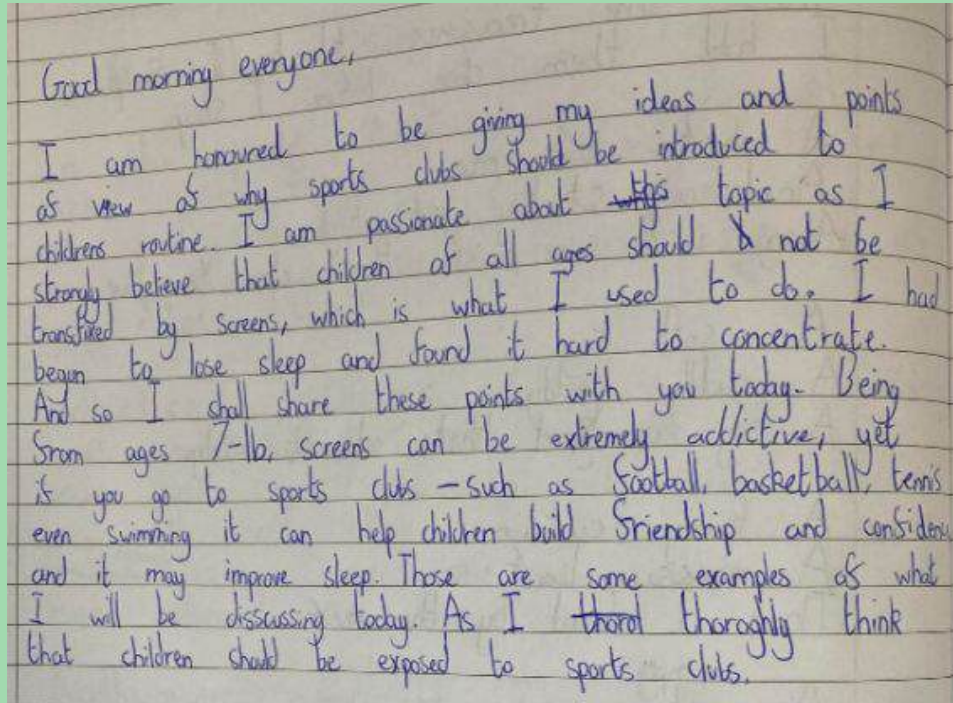 Good morning everyone,
I am honoured to be giving my ideas and points
of view of why sports clubs should be introduced to
childrens routine. I am passionate about this topic as I
strongly believe that children of all ages should not be
transfixed by screens, which is what I used to do. I had
begun to lose sleep and found it hard to concentrate.
And so I shall share these points with you today. Being
from ages 7-16, screens can be extremely addictive, yet
if you go to sports clubs - such as football, basketball, tennis
even swimming it can help children build friendship and confidence
and it may improve sleep. Those are some examples of what
I will be disscussing today. As I thorol thoroghly think
that children should be exposed to sports clubs.